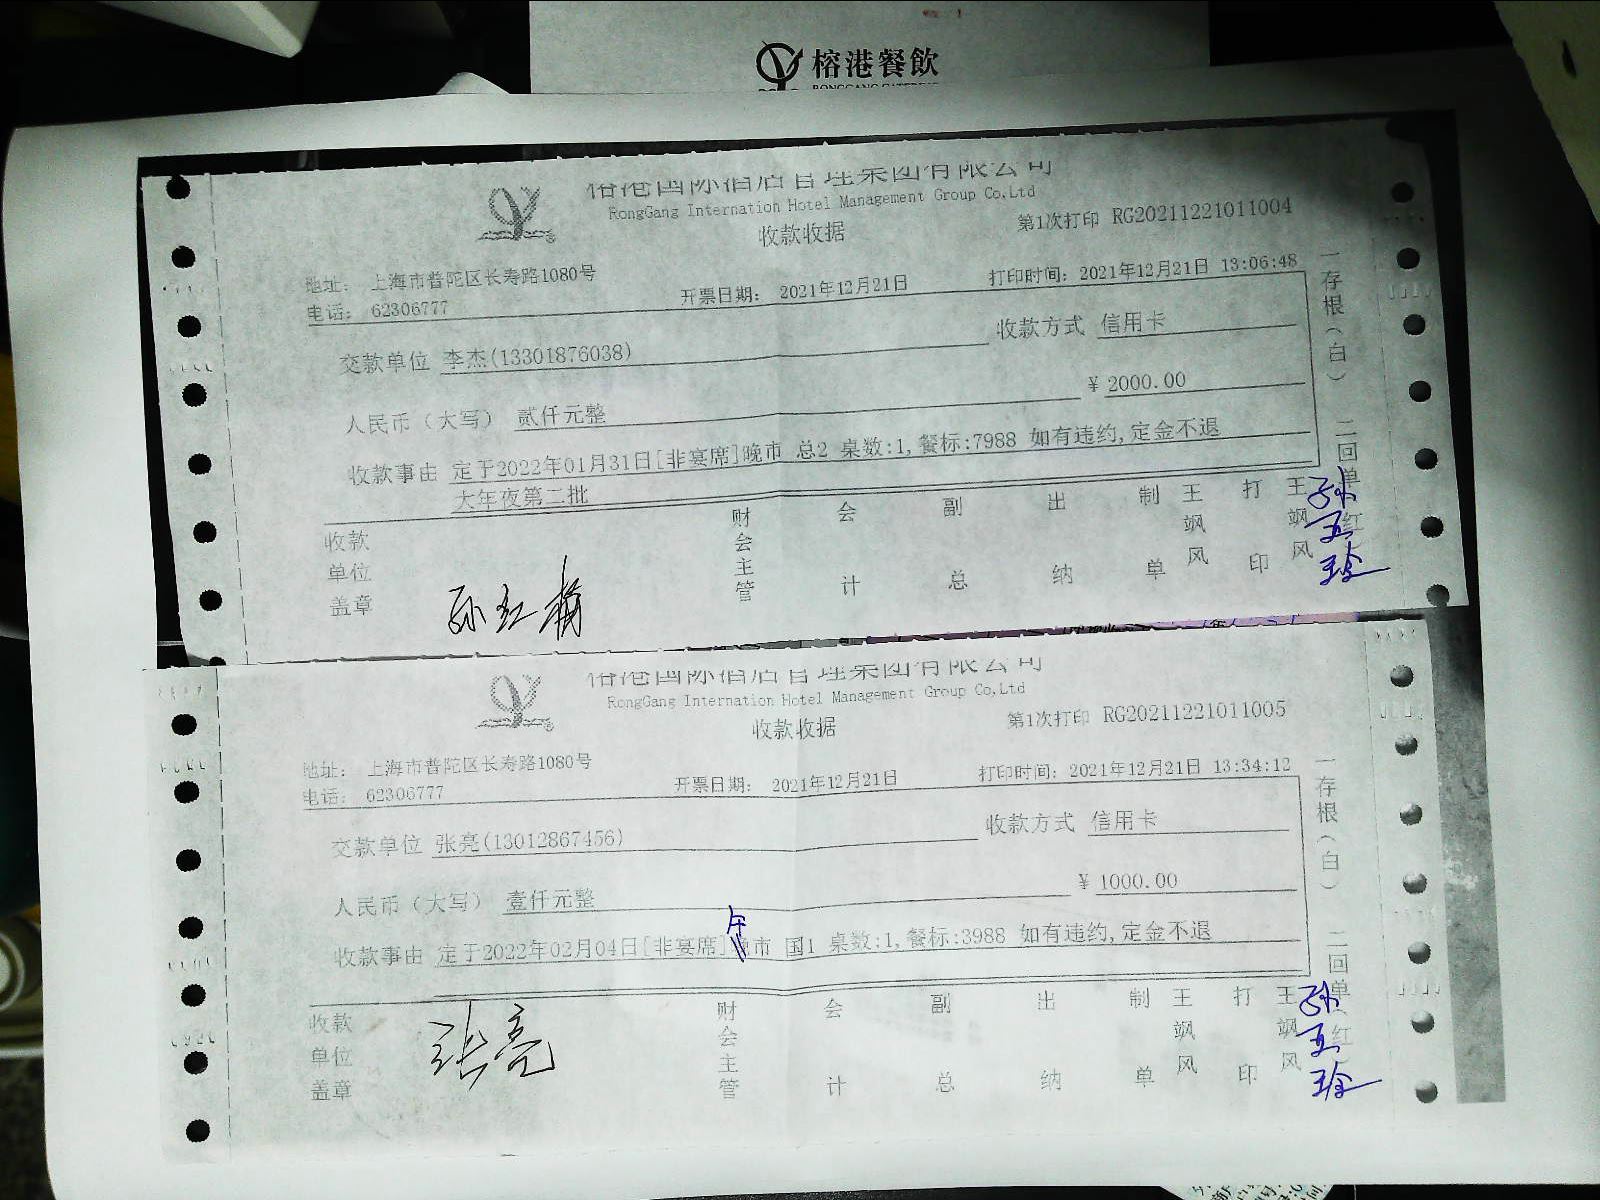 榕港餐飲
榕港国际酒店管理集团有限公司
RongGang Internation Hotel Management Group Co.Ltd
收款收据
第1次打印 RG20211221011004
地址: 上海市普陀区长寿路1080号
电话: 62306777
开票日期: 2021年12月21日
打印时间: 2021年12月21日 13:06:48
交款单位 李杰(13301876038)
收款方式 信用卡
人民币(大写) 贰仟元整
¥ 2000.00
收款事由 定于2022年01月31日[非宴席]晚市 总2 桌数:1,餐标:7988 如有违约,定金不退
大年夜第二批
收款单位盖章
孙红梅
财会主管
会计
副总
出纳
制单 王飒风
打印 王飒风
一存根(白) 二回单(红
榕港国际酒店管理集团有限公司
RongGang Internation Hotel Management Group Co.Ltd
收款收据
第1次打印 RG20211221011005
地址: 上海市普陀区长寿路1080号
电话: 62306777
开票日期: 2021年12月21日
打印时间: 2021年12月21日 13:34:12
交款单位 张亮(13012867456)
收款方式 信用卡
人民币(大写) 壹仟元整
¥ 1000.00
午
收款事由 定于2022年02月04日[非宴席]晚市 国1 桌数:1,餐标:3988 如有违约,定金不退
收款单位盖章
张亮
财会主管
会计
副总
出纳
制单 王飒风
打印 王飒风
一存根(白) 二回单(红